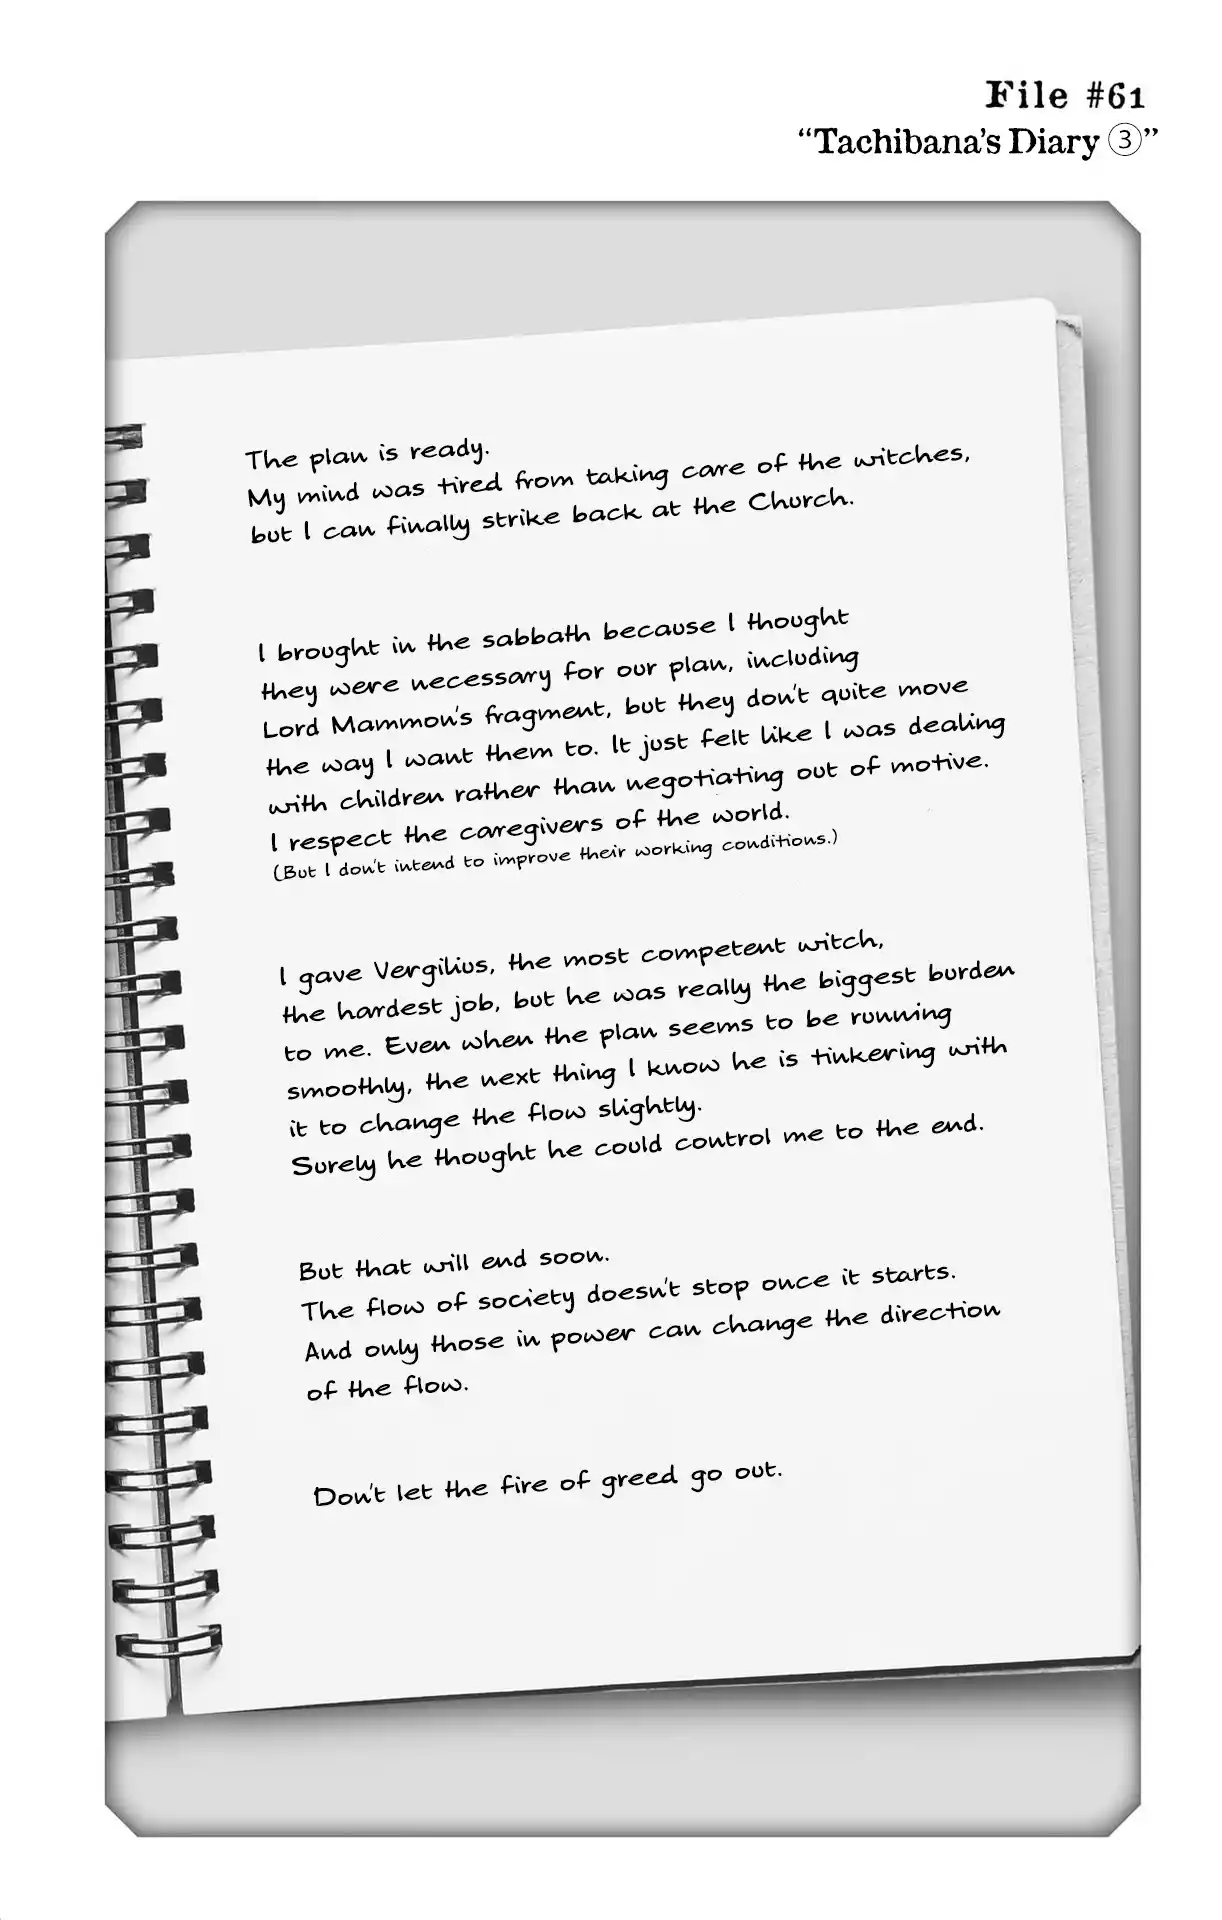 File #61
“Tachibana’s Diary ③”
The plan is ready.
My mind was tired from taking care of the witches,
but I can finally strike back at the Church.
I brought in the sabbath because I thought
they were necessary for our plan, including
Lord Mammon's fragment, but they don't quite move
the way I want them to. It just felt like I was dealing
with children rather than negotiating out of motive.
I respect the caregivers of the world.
(But I don't intend to improve their working conditions.)
I gave Vergilius, the most competent witch,
the hardest job, but he was really the biggest burden
to me. Even when the plan seems to be running
smoothly, the next thing I know he is tinkering with
it to change the flow slightly.
Surely he thought he could control me to the end.
But that will end soon.
The flow of society doesn't stop once it starts.
And only those in power can change the direction
of the flow.
Don't let the fire of greed go out.